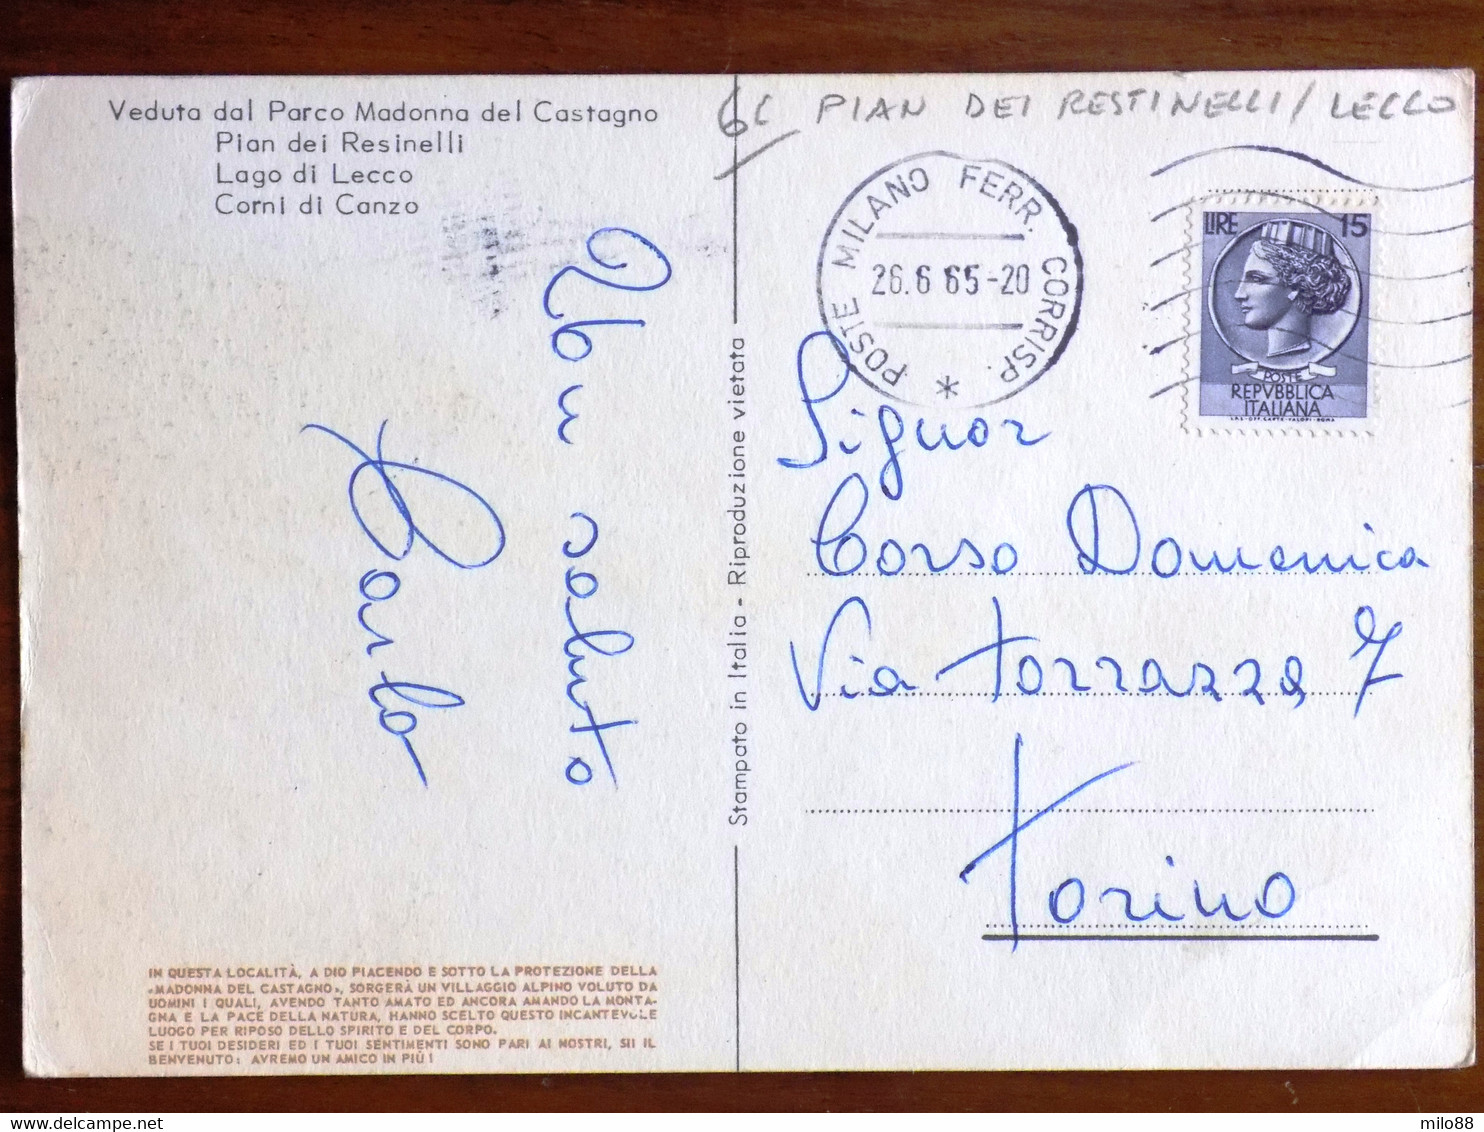 Veduta dal Parco Madonna del Castagno
Pian dei Resinelli
Lago di Lecco
Corni di Canzo
6L PIAN DEI RESTINELLI / LECCO
POSTE MILANO FERR. CORRISP. *
26.6 65-20
LIRE 15
POSTE
REPVBBLICA
ITALIANA
I.P.S.-OFF. CARTE-VALORI-ROMA
saluto
Carlo
Stampato in Italia - Riproduzione vietata
Signor
Corso Domenica
Via Torrazza 7
Torino
IN QUESTA LOCALITÀ, A DIO PIACENDO E SOTTO LA PROTEZIONE DELLA
«MADONNA DEL CASTAGNO», SORGERÀ UN VILLAGGIO ALPINO VOLUTO DA
UOMINI I QUALI, AVENDO TANTO AMATO ED ANCORA AMANDO LA MONTA-
GNA E LA PACE DELLA NATURA, HANNO SCELTO QUESTO INCANTEVOLE
LUOGO PER RIPOSO DELLO SPIRITO E DEL CORPO.
SE I TUOI DESIDERI ED I TUOI SENTIMENTI SONO PARI AI NOSTRI, SII IL
BENVENUTO: AVREMO UN AMICO IN PIÙ!
milo88